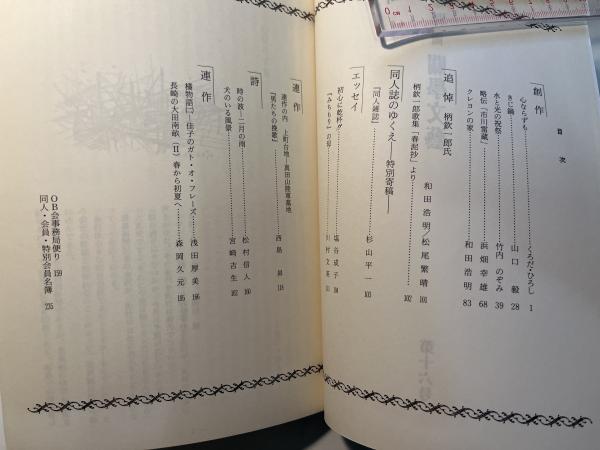 目次
創作
心ならずも……くろだ・ひろし 1
きじ鍋……山口 毅 28
水と光の祝祭……竹内 のぞみ 39
略伝「市川雷蔵」……浜畑幸雄 68
クレヨンの家……和田浩明 83
追悼 柄欽一郎氏
柄欽一郎歌集『春泥抄』より
和田浩明/松尾繁晴 101
同人誌のゆくえ―特別寄稿―
『同人雑誌』……102
杉山平一 103
エッセイ
初心に乾杯!!……塩谷成子
連作
連作の内 上町台地―真田山陸軍墓地
『男たちの挽歌』……西島
詩
時の波―二月の雨……松村信人
犬のいる風景……宮崎吉生
連作
橘物語㈡ 佳子のガト・オ・フレーズ……浅田厚美
長崎の大田南畝(Ⅱ)春から初夏へ……森岡久元
OB会事務局便り 159
同人・会員・特別会員名簿